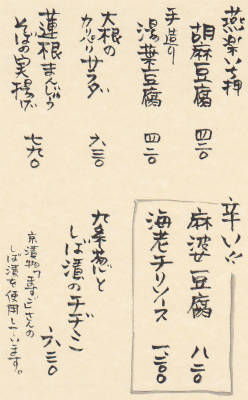 燕楽いち押
胡麻豆腐 四二〇
手造り
湯葉豆腐 四二〇
大根の
カリパリサラダ 六三〇
蓮根まんじゅう
そばの実揚げ 七六〇
辛い!!
麻波豆腐 八二〇
海老チリソース 一、二〇〇
九条葱と
しば漬のチヂミ 六三〇
京漬物「ますご」さんの
しば漬を使用しています。